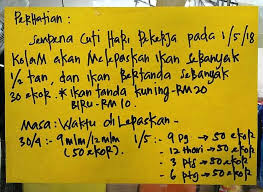 Perhatian :
Sempena Cuti Hari Pekerja pada 1/5/18
Kolam akan Melepaskan Ikan Sebanyak
1/2 tan, dan Ikan Bertanda Sebanyak
30 ekor. * Ikan tanda kuning - RM20
BIRU - RM10.
Masa : Waktu dilepaskan -
30/4 :- 9 mlm/12 mlm 1/5 :- 9 pg. → 50 ekor
(50 ekor). - 12 thari → 50 ekor
- 3 ptg → 50 ekor
- 6 ptg → 50 ekor